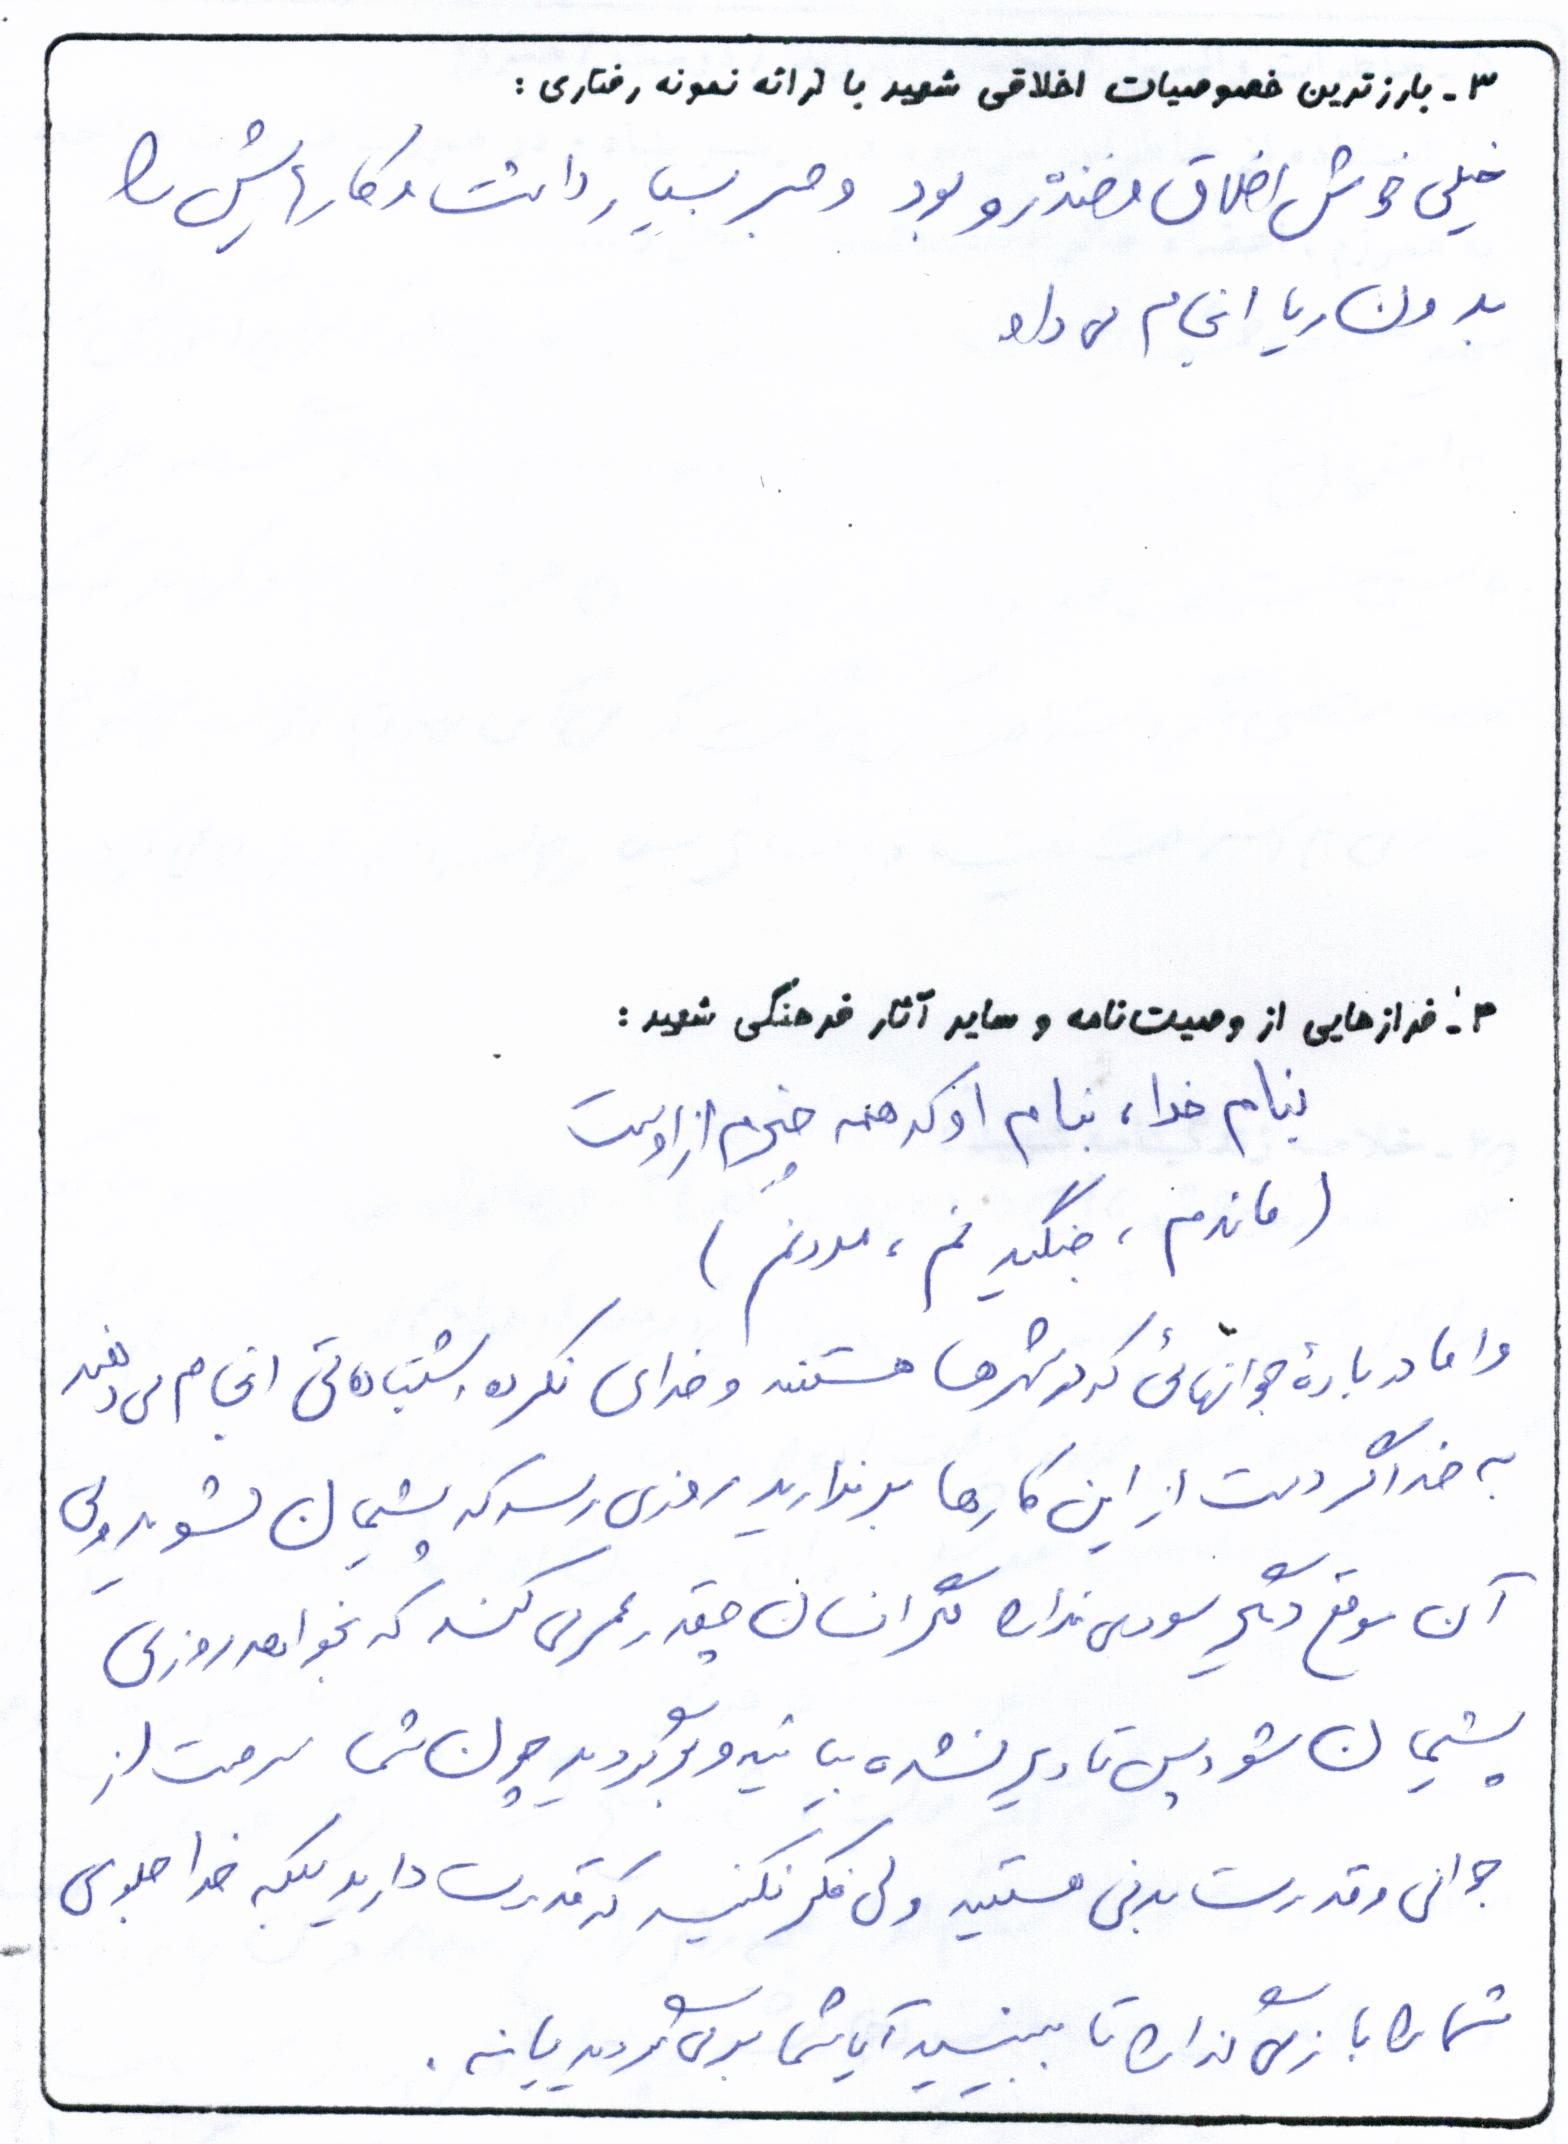 ۳ـ بارزترین خصوصیات اخلاقی شهید با ارائه نمونه رفتاری :
خیلی خوش اخلاق و خنده رو بود و صبر بسیار داشت و کارهایش را
بدون ریا انجام می داد
۴ـ فرازهایی از وصیت‌نامه و سایر آثار فرهنگی شهید :
بنام خدا، بنام او که همه چیزم از اوست
( ماندم ، جنگیدنم ، مردنم )
و اما درباره جوانهائی که در شهرها هستند و خدای نکرده اشتباهاتی انجام می دهند
به خدا اگر دست از این کارها برندارید روزی رسد که پشیمان شوید ولی
آن موقع دیگر سودی ندارد مگر انسان چقدر عمر می کند که بخواهد روزی
پشیمان شود پس تا دیر نشده بیائید و برگردید چون شما سرمست از
جوانی و قدرت بدنی هستید ولی فکر نکنید که قدرت دارید بلکه خدا جلوی
شما را باز می گذارد تا ببینید آیا شما برمی گردید یا نه .